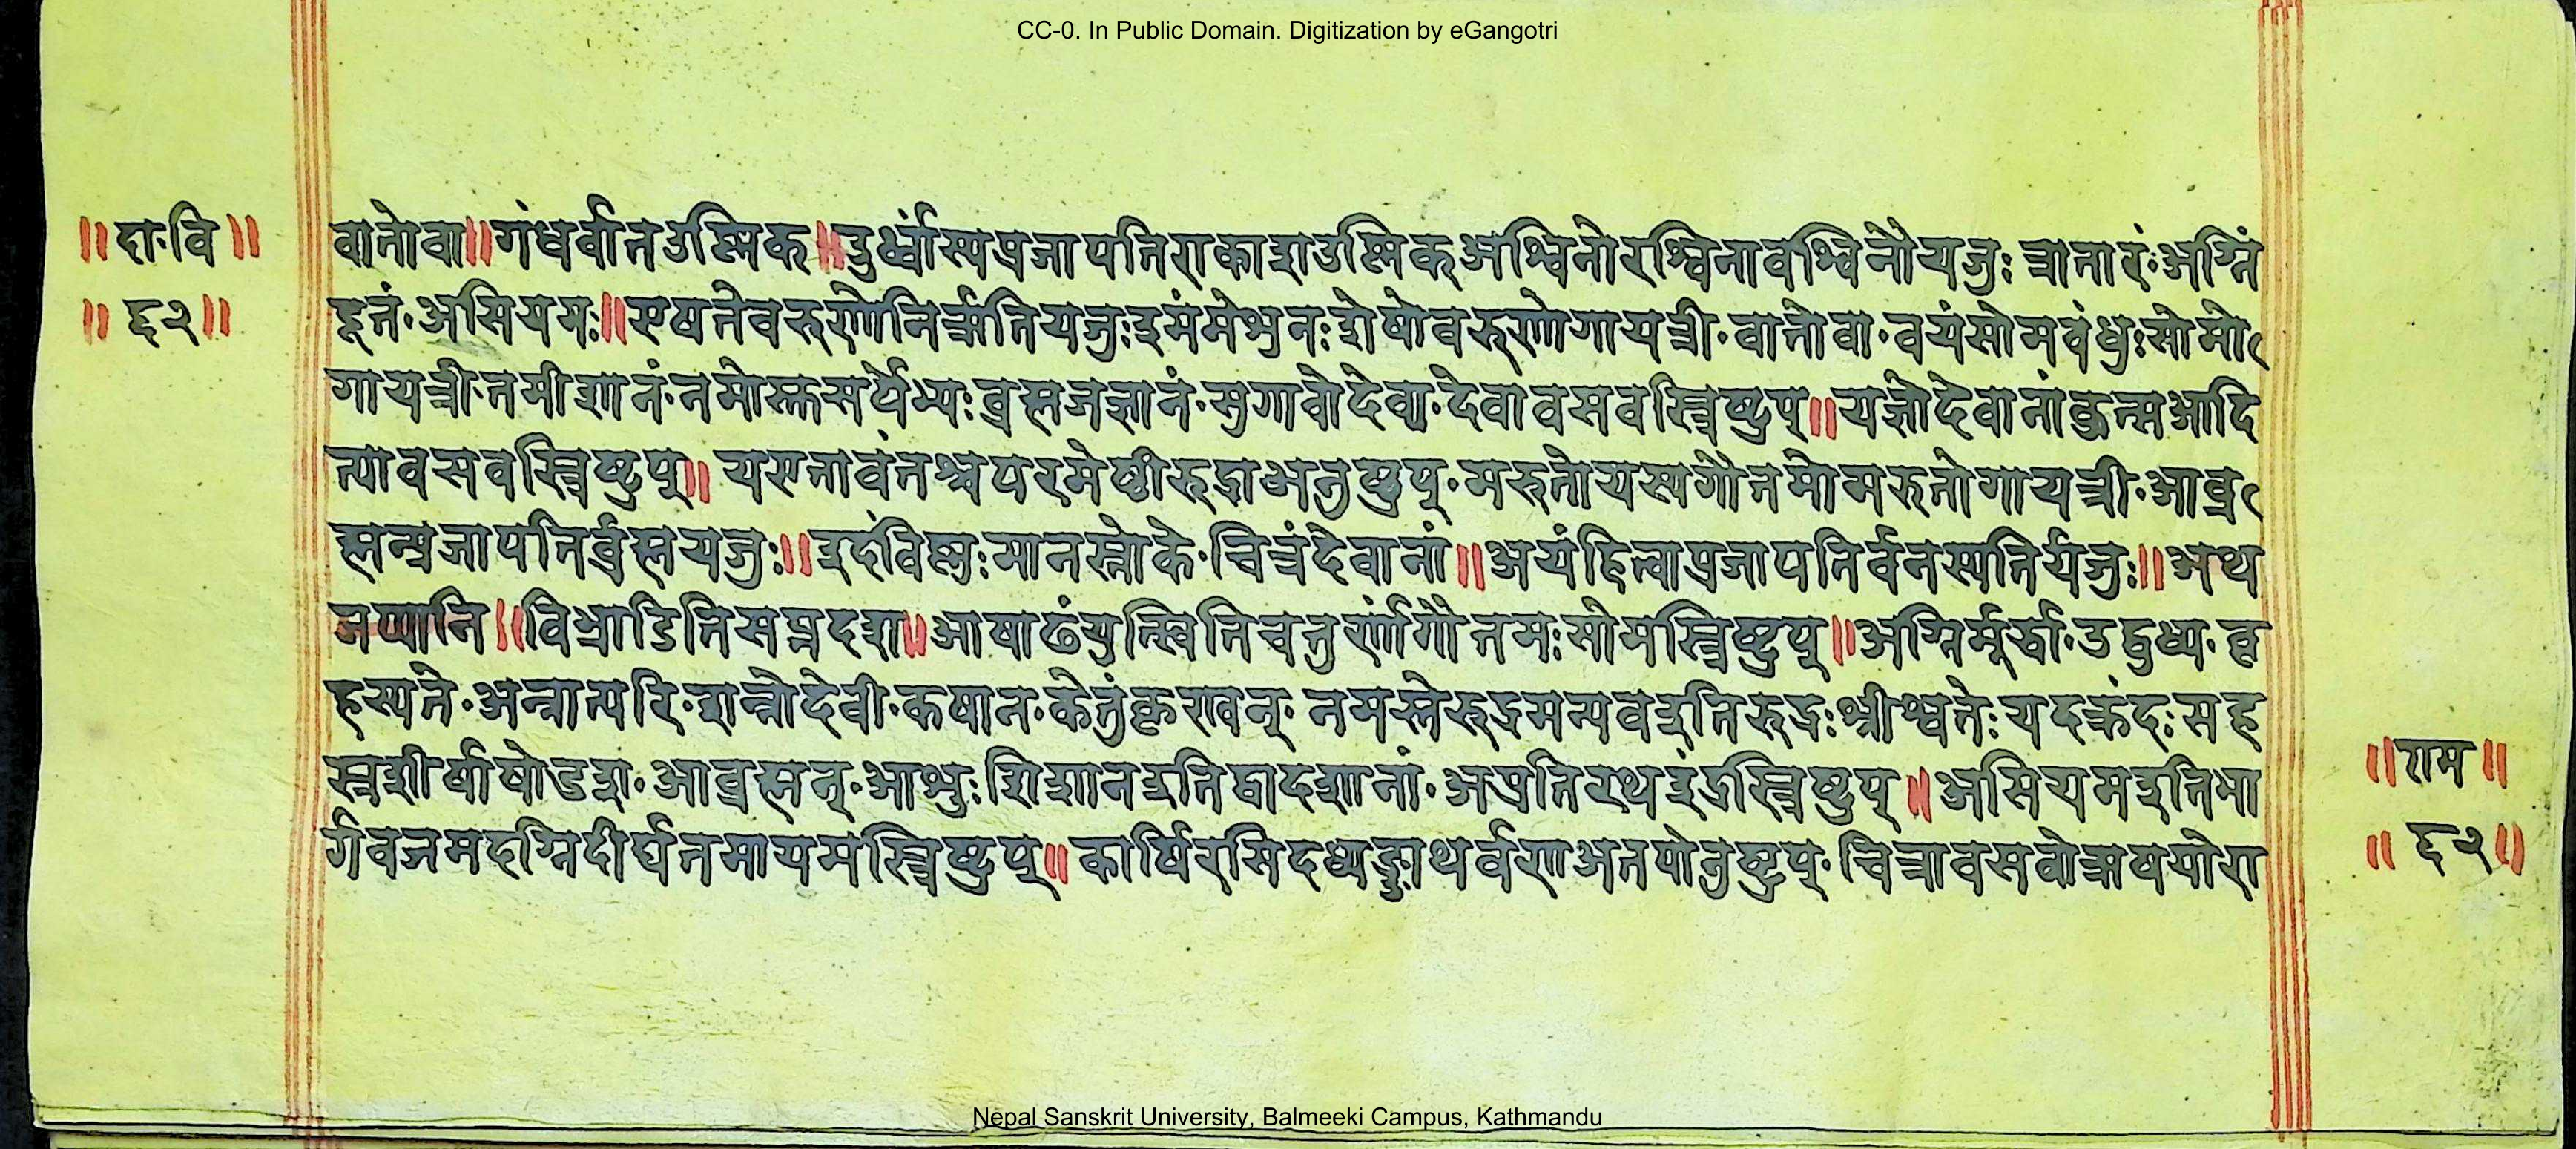 CC-0. In Public Domain. Digitization by eGangotri
॥दा·वि॥
॥ ६२॥
वातोवा॥गंधर्वानउस्निक॥उर्ध्वास्यप्रजापतिराकाशउस्निक्अश्विनोरश्विनावश्विनौयजुः त्रातारं·अग्निं
दूतं·असियमः॥एषतेवरुणोनिरृतियजुःइमंमेशुनःशेषोवरुणोगायत्री·वातोवा·वयंसोमबंधुःसोमो
गायत्री·तमीशानं·नमोस्तुसर्पेभ्यः ब्रह्मजज्ञानं·सुगावोदेव्या·देवावसवस्त्रिष्टुप्॥यज्ञोदेवानांकुत्सआदि
त्यावसवस्त्रिष्टुप्॥ यएतावंतश्चपरमेष्ठीरुद्राअनुष्टुप्·मरुतोयस्यगौतमोमरुतोगायत्री·आब्र
ह्मन्प्रजापतिर्ब्रह्मयजुः॥इदंविष्णुःमानस्तोके·चित्रंदेवानां॥अयंहित्वाप्रजापतिर्वनस्पतिर्यजुः॥अथ
जप्यानि॥विभ्राडितिसप्तदश॥आषाढंयुत्स्वितिचतुर्णांगौतमःसोमस्त्रिष्टुप्॥अग्निर्मूर्द्धा·उद्बुध्य·बृ
हस्पते·अन्नात्परि·शन्नोदेवी·कयान·केतुंकृण्वन्· नमस्तेरुद्रमन्यवइतिरुद्रःश्रीश्चतेःयदक्रंदःसह
स्त्रशीर्षाषोडश·आब्रह्मन्·आशुःशिशानइतिद्वादशानां·अप्रतिरथइंद्रस्त्रिष्टुप्॥असियमइतिभा
र्गवजमदग्निदीर्घतमायमस्त्रिष्टुप्॥ कार्षिरसिदध्यङ्ङाथर्वणआतपोनुष्टुप्·चित्रावसवोऋषयोरा
॥राम॥
॥ ६२॥
Nepal Sanskrit University, Balmeeki Campus, Kathmandu